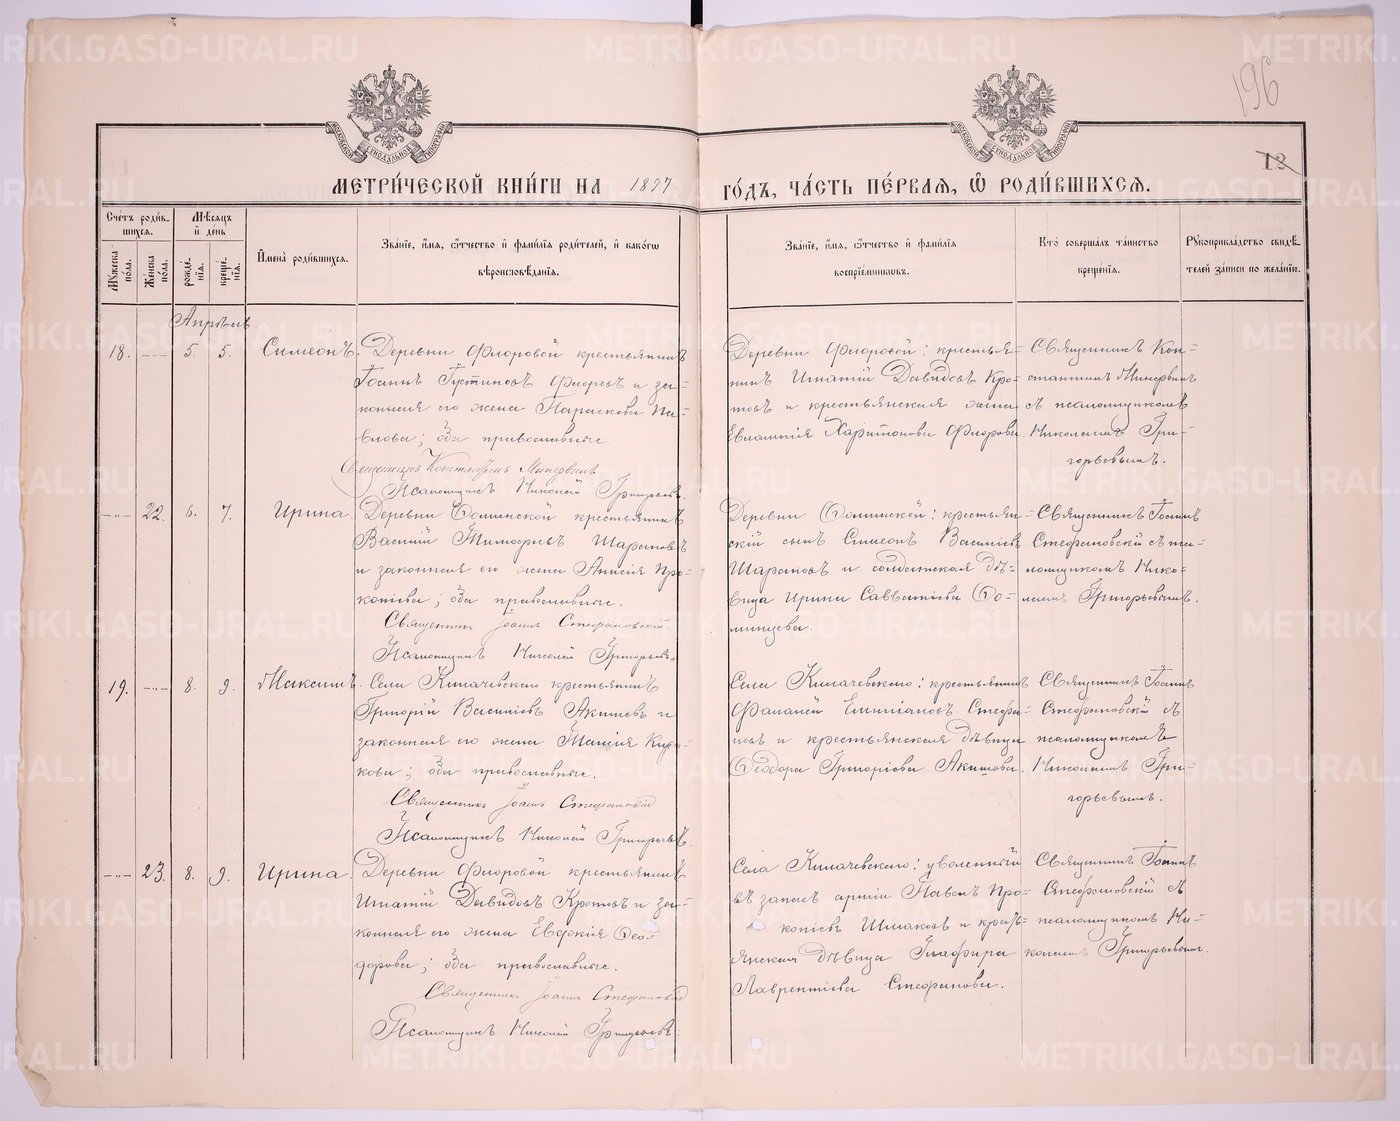 196
12
МЕТРИ́ЧЕСКОЙ КНИ́ГИ НА 1897 ГО́ДЪ, ЧА́СТЬ ПЕ́РВАЯ, Ѡ РОДИ́ВШИХСЯ.
Сче́тъ роди́в-
шихся.
Мꙋ́жеска по́ла.
Же́нска по́ла.
Мѣ́сяцъ
и҆ де́нь
рожде́-
нїя.
креще́-
нїя.
И҆мена̀ роди́вшихся.
Зва́нїе, и҆́мя, ѻ҆́тчество и҆ фами́лїя роди́телей, и҆ како́гѡ
вѣроисповѣ́данїя.
Зва́нїе, и҆́мя, ѻ҆́тчество и҆ фами́лїя
воспрїе́мниковъ.
Кто̀ соверша́лъ та́инство
креще́нїя.
Рꙋкоприкла́дство свидѣ́-
телей за́писи по жела́нїю.
Апрѣль
18. -"- 5. 5. Симеонъ.
Деревни Флоровой крестьянинъ
Іоаннъ Іустиновъ Флоровъ и за-
конная его жена Параскева Па-
влова; оба православные.
Священникъ Константинъ Минервинъ
Псаломщикъ Николай Григорьевъ.
Деревни Флоровой: крестья-
нинъ Игнатій Давидовъ Кро-
товъ и крестьянская жена
Евлампія Харитонова Флорова.
Священникъ Кон-
стантинъ Минервинъ
съ псаломщикомъ
Николаемъ Гри-
горьевымъ.
-"- 22. 6. 7. Ирина
Деревни Ѳоминской крестьянинъ
Василій Тимоѳеевъ Шараповъ
и законная его жена Анисія Про-
копіева; оба православные.
Священникъ Іоаннъ Стефановскій.
Псаломщикъ Николай Григорьевъ.
Деревни Ѳоминской: крестьян-
скій сынъ Симеонъ Василіевъ
Шараповъ и солдатская дѣ-
вица Ирина Савватіева Ѳо-
минцева.
Священникъ Іоаннъ
Стефановскій съ пса-
ломщикомъ Нико-
лаемъ Григорьевымъ.
19. -"- 8. 9. Максимъ.
Села Килачевскаго крестьянинъ
Григорій Василіевъ Акишевъ и
законная его жена Таисія Кир-
кова; оба православные.
Священникъ Іоаннъ Стефановскій
Псаломщикъ Николай Григорьевъ.
Села Килачевскаго: крестьянинъ
Фалалей Емиліановъ Стефа-
новъ и крестьянская дѣвица
Ѳеодора Григоріева Акишова.
Священникъ Іоаннъ
Стефановскій съ
псаломщикомъ
Николаемъ Гри-
горьевымъ.
-"- 23. 8. 9. Ирина.
Деревни Флоровой крестьянинъ
Игнатій Давидовъ Кротовъ и за-
конная его жена Евдокія Ѳео-
дорова; оба православные.
Священникъ Іоаннъ Стефановскій
Псаломщикъ Николай Григорьевъ.
Села Килачевскаго: уволенный
въ запасъ арміи Павелъ Про-
копіевъ Шмаковъ и кресть-
янская дѣвица Глафира
Лаврентіева Стефанова.
Священникъ Іоаннъ
Стефановскій съ
псаломщикомъ Ни-
колаемъ Григорьевымъ.
METRIKI.GASO-URAL.RU